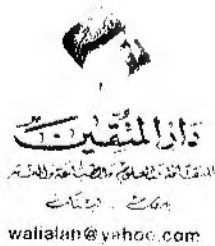 دار المتقين
للثقافة والعلوم والطباعة والنشر
بيروت - لبنان
walialah@yahoo.com